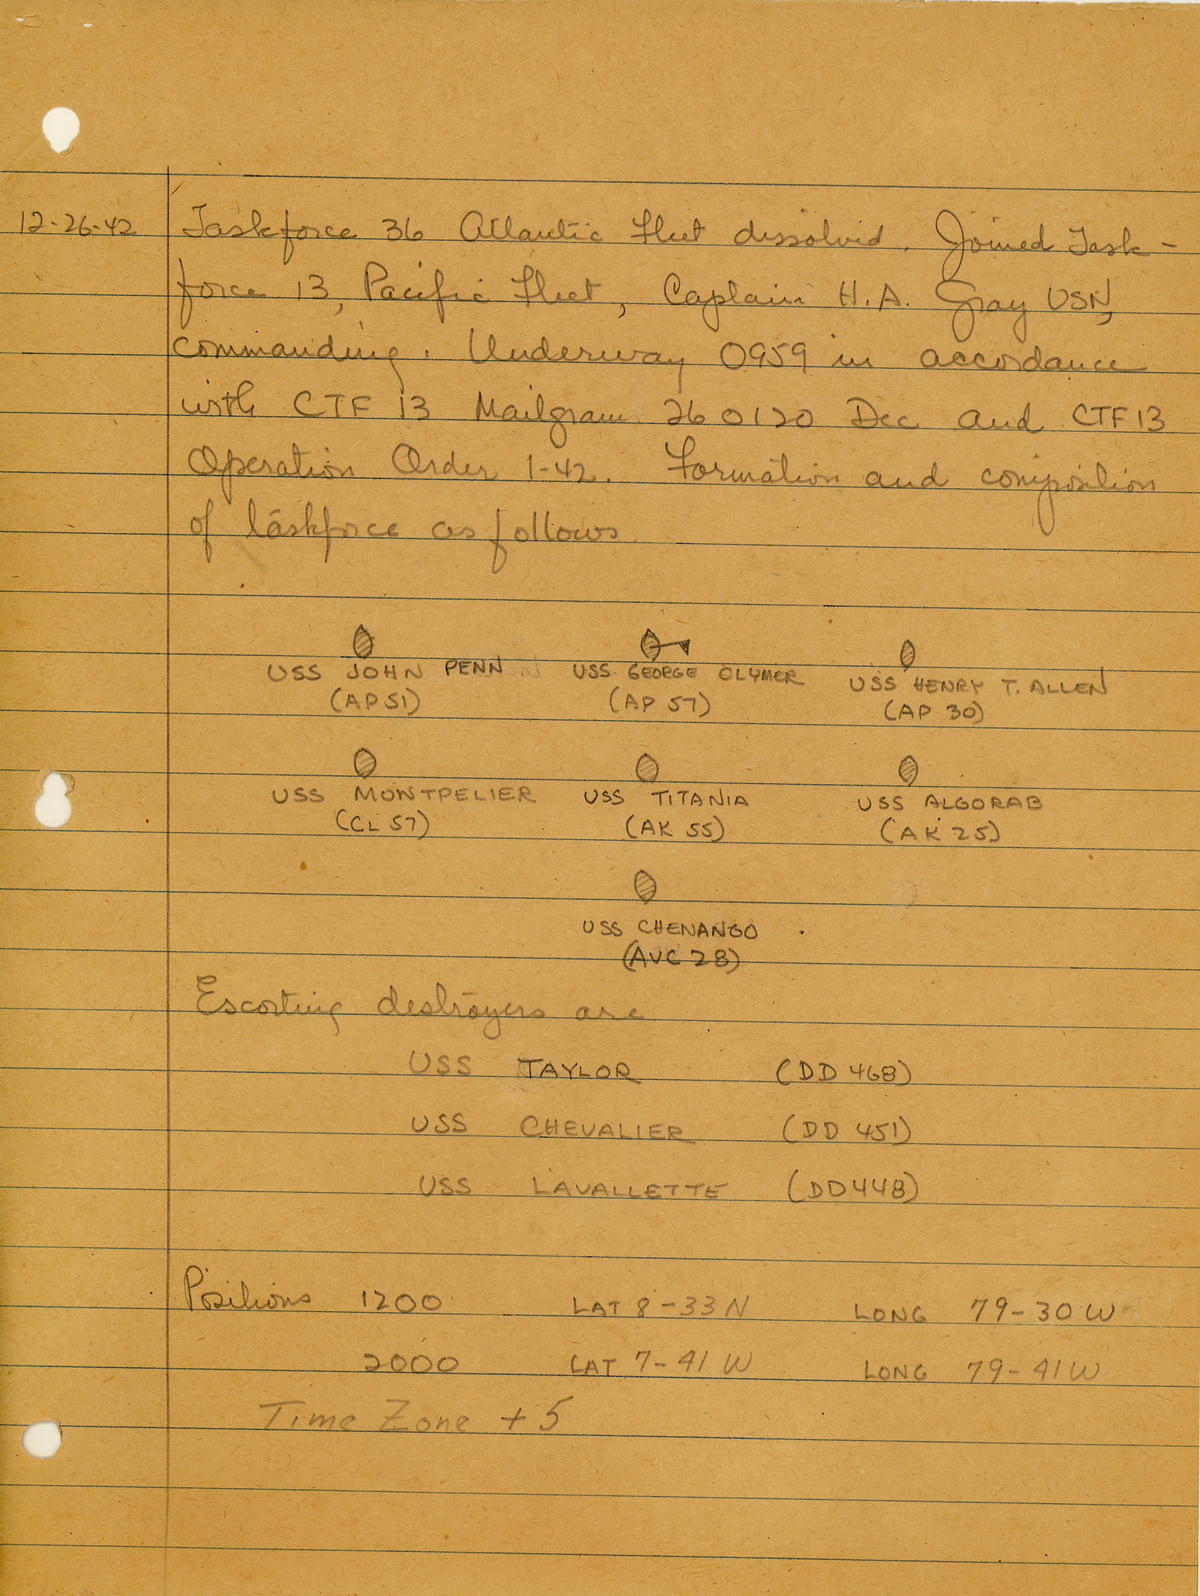 12-26-42 Taskforce 36 Atlantic Fleet dissolved. Joined Task-
force 13, Pacific Fleet, Captain H.A. Gray USN,
commanding. Underway 0959 in accordance
with CTF 13 Mailgram 260120 Dec and CTF13
Operation Order 1-42. Formation and composition
of taskforce as follows
USS JOHN PENN USS GEORGE CLYMER USS HENRY T. ALLEN
(AP 51) (AP 57) (AP 30)
USS MONTPELIER USS TITANIA USS ALGORAB
(CL 57) (AK 55) (AK 25)
USS CHENANGO
(AVC 28)
Escorting destroyers are
USS TAYLOR (DD 468)
USS CHEVALIER (DD 451)
USS LAVALLETTE (DD448)
Positions 1200 LAT 8-33 N LONG 79-30 W
2000 LAT 7-41 W LONG 79-41 W
Time Zone +5